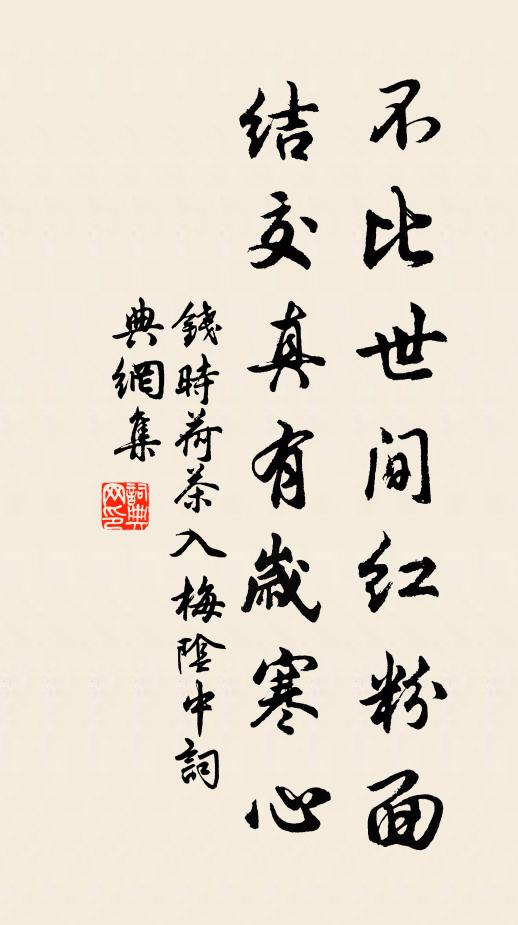 不比世间红粉面
结交真有歲寒心
錢時荷茶入梅陰中詞
典網集
詞典网印